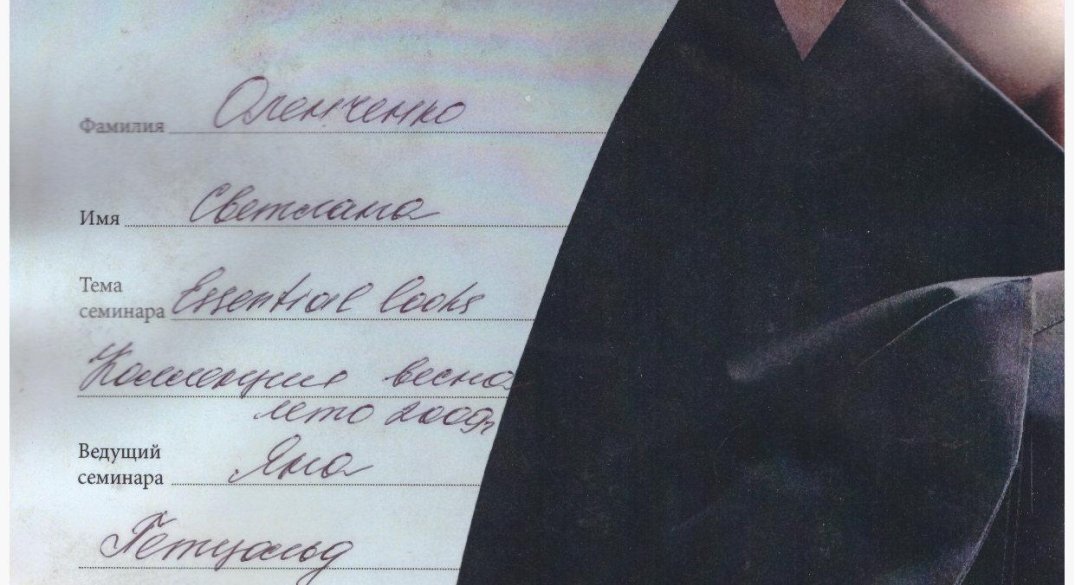 Фамилия Оленченко
Имя Светлана
Тема
семинара Essential looks
Коллекция весна
лето 2009г
Ведущий
семинара Яна
Гетцольд